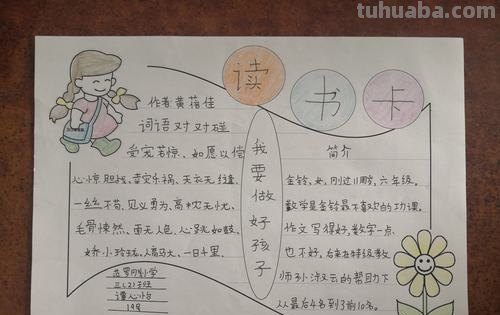 tuhuaba.com
读书卡
作者:黄蓓佳
词语对对碰
受宠若惊、如愿以偿
心惊胆战、幸灾乐祸、天衣无缝、
一丝不苟、见义勇为、高枕无忧、
毛骨悚然、面无人色、心跳如鼓、
娇小玲珑、人高马大、一日千里、
三(2)班
19号
我要做好孩子
简介
金铃,女,刚过11周岁,六年级。
数学是金铃最不喜欢的功课。
作文写得好,数学一点
也不好,后来在特级教
师孙淑云的帮助下
从最后4名到了前10名。